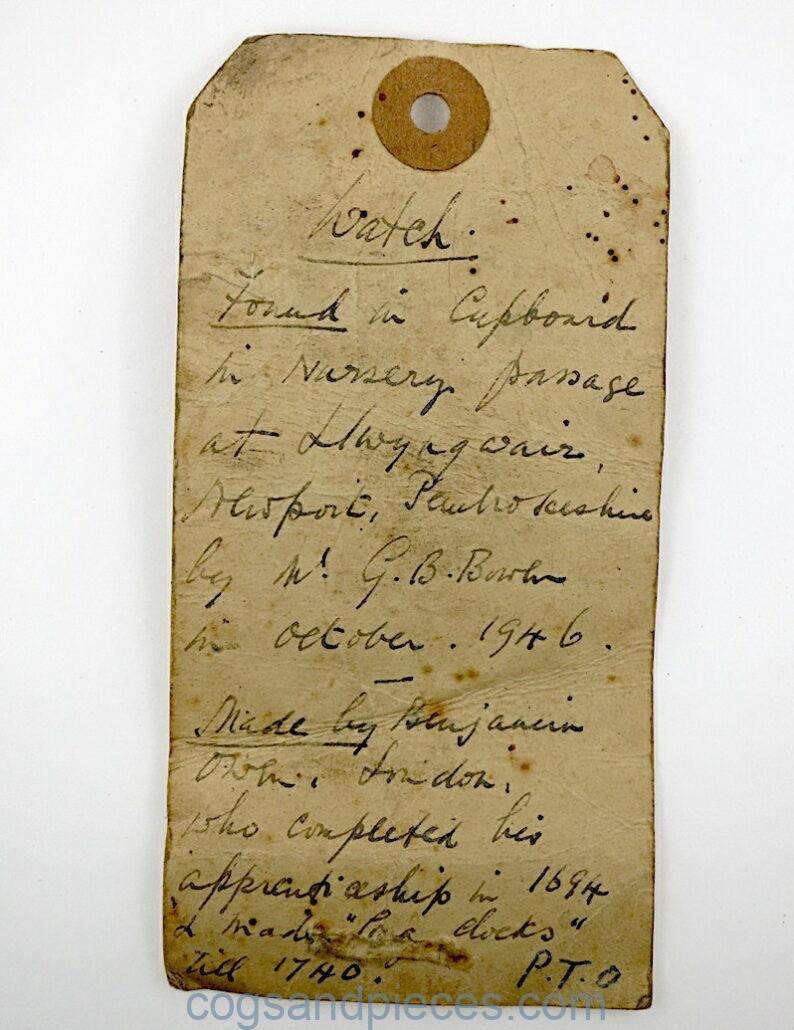 Watch.
Found in Cupboard
in Nursery passage
at Llwyngwair,
Newport, Pembrokeshire
by Mr. G. B. Bowen
in October. 1946.
—
Made by Benjamin
Owen, London,
who completed his
apprenticeship in 1694
& made clocks"
till 1740. P.T.O
cogsandpieces.com